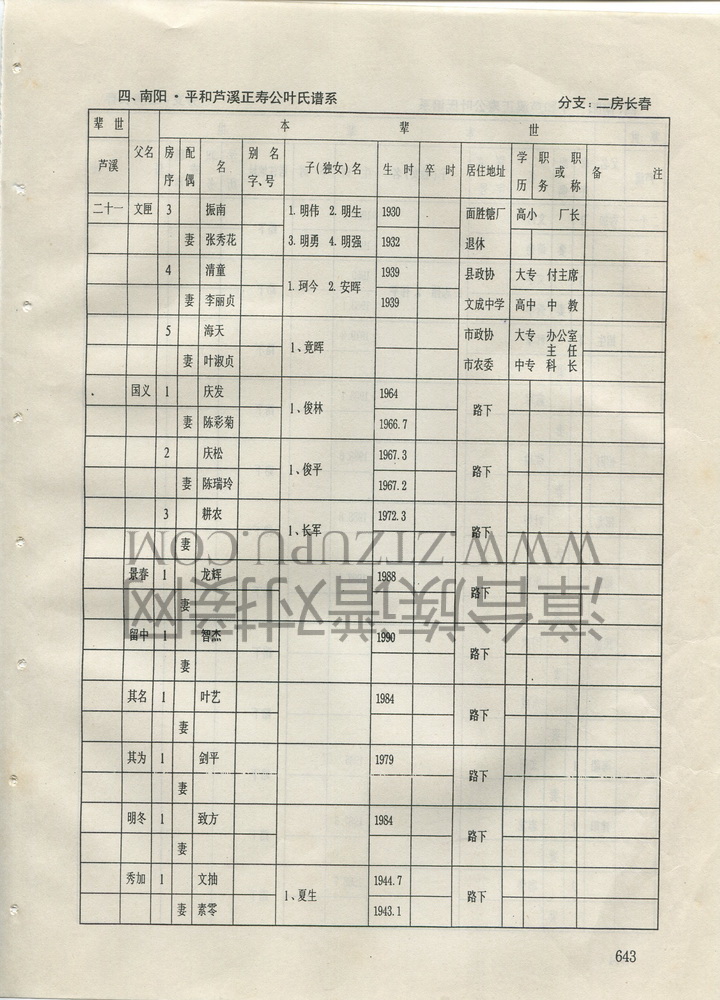 四、南阳·平和芦溪正寿公叶氏谱系 分支：二房长春
辈世 父名 本 辈 世
芦溪 房序 配偶 名 别名字、号 子(独女)名 生时 卒时 居住地址 学历 职务或职称 备注
二十一 文匣 3 振南 1.明伟 2.明生 1930 面胜糖厂 高小 厂长
妻 张秀花 3.明勇 4.明强 1932 退休
4 清童 1.珂今 2.安晖 1939 县政协 大专 付主席
妻 李丽贞 1939 文成中学 高中 中教
5 海天 1、竟晖 市政协 大专 办公室主任
妻 叶淑贞 市农委 中专 科长
国义 1 庆发 1、俊林 1964 路下
妻 陈彩菊 1966.7
2 庆松 1、俊平 1967.3 路下
妻 陈瑞玲 1967.2
3 耕农 1、长军 1972.3 路下
妻
景春 1 龙辉 1988 路下
妻
留中 1 智杰 1990 路下
妻
其名 1 叶艺 1984 路下
妻
其为 1 剑平 1979 路下
妻
明冬 1 致方 1984 路下
妻
秀加 1 文抽 1、夏生 1944.7 路下
妻 素零 1943.1
643
WWW.ZTZUPU.COM
漳台族谱对接网